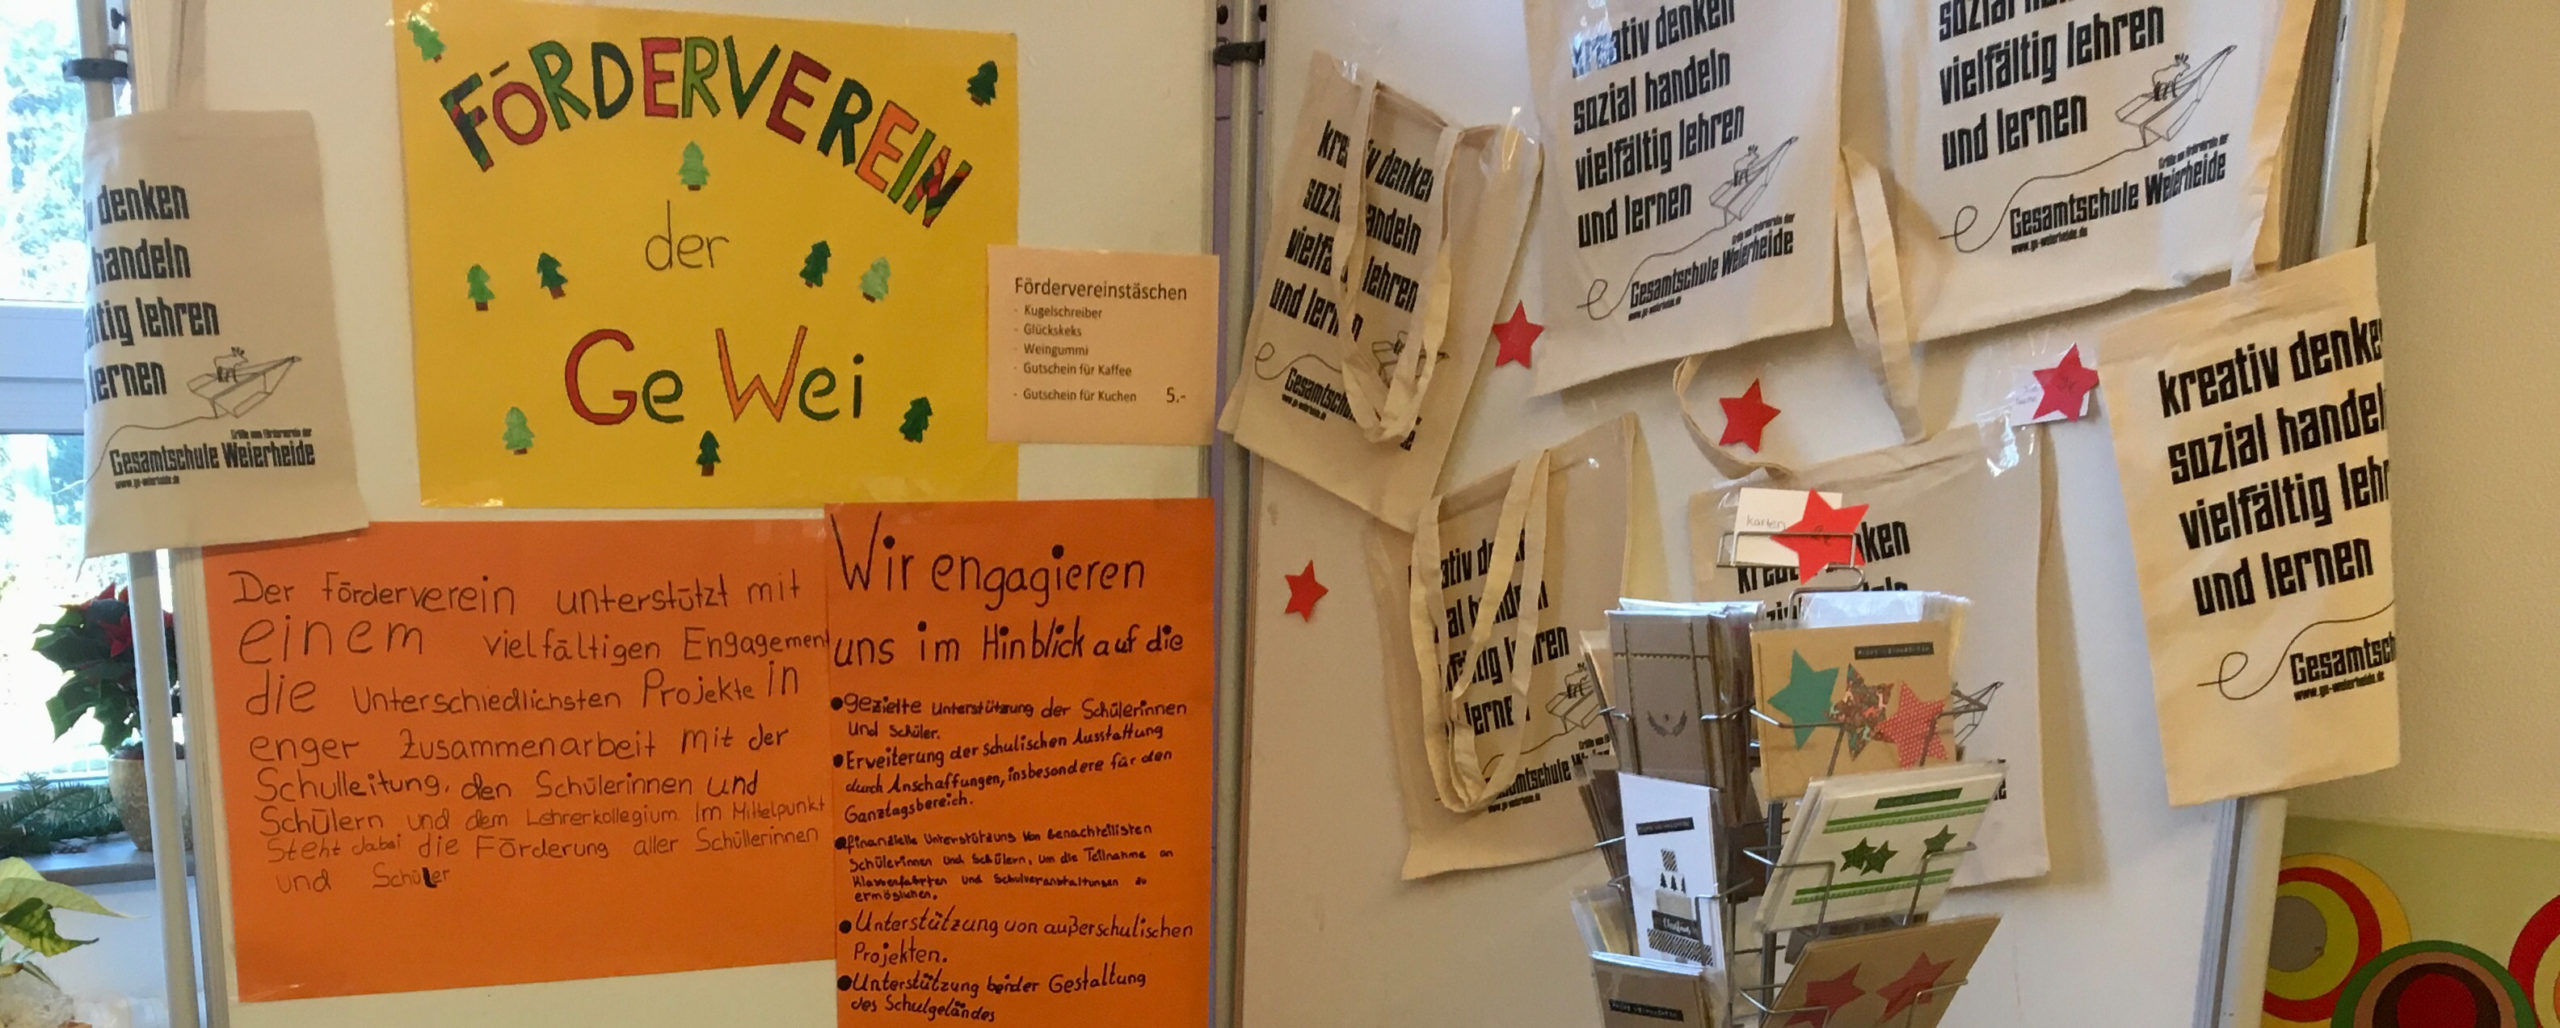 FÖRDERVEREIN
der
Ge Wei
Fördervereinstäschen
- Kugelschreiber
- Glückskeks
- Weingummi
- Gutschein für Kaffee
- Gutschein für Kuchen 5.-
Der Förderverein unterstützt mit
einem vielfältigen Engagement
die Unterschiedlichsten Projekte in
enger Zusammenarbeit mit der
Schulleitung, den Schülerinnen und
Schülern und dem Lehrerkollegium. Im Mittelpunkt
Steht dabei die Förderung aller Schüllerinnen
und Schüler
Wir engagieren
uns im Hinblick auf die
• gezielte Unterstützung der Schülerinnen
und Schüler.
• Erweiterung der schulischen Ausstattung
durch Anschaffungen, insbesondere für den
Ganztagsbereich.
• finanzielle Unterstützung von benachteilisten
Schülerinnen und Schülern, um die Teilnahme an
Klassenfahrten und Schulveranstaltungen zu
ermöglichen.
• Unterstützung von außerschulischen
Projekten.
• Unterstützung bei der Gestaltung
des Schulgeländes
denken
handeln
lehren
lernen
Grüße vom Förderverein der
Gesamtschule Weierheide
www.ge-weierheide.de
denken
handeln
lehren
und lernen
kreativ denken
sozial handeln
vielfältig lehren
und lernen
Grüße vom Förderverein der
Gesamtschule Weierheide
www.ge-weierheide.de
sozial
vielfältig lehren
und lernen
Grüße vom Förderverein der
Gesamtschule Weierheide
www.ge-weierheide.de
kreativ denke
sozial handel
vielfältig lehr
und lernen
Gesamtsch
www.ge-weierheide.de
lehren
lerne
Karten